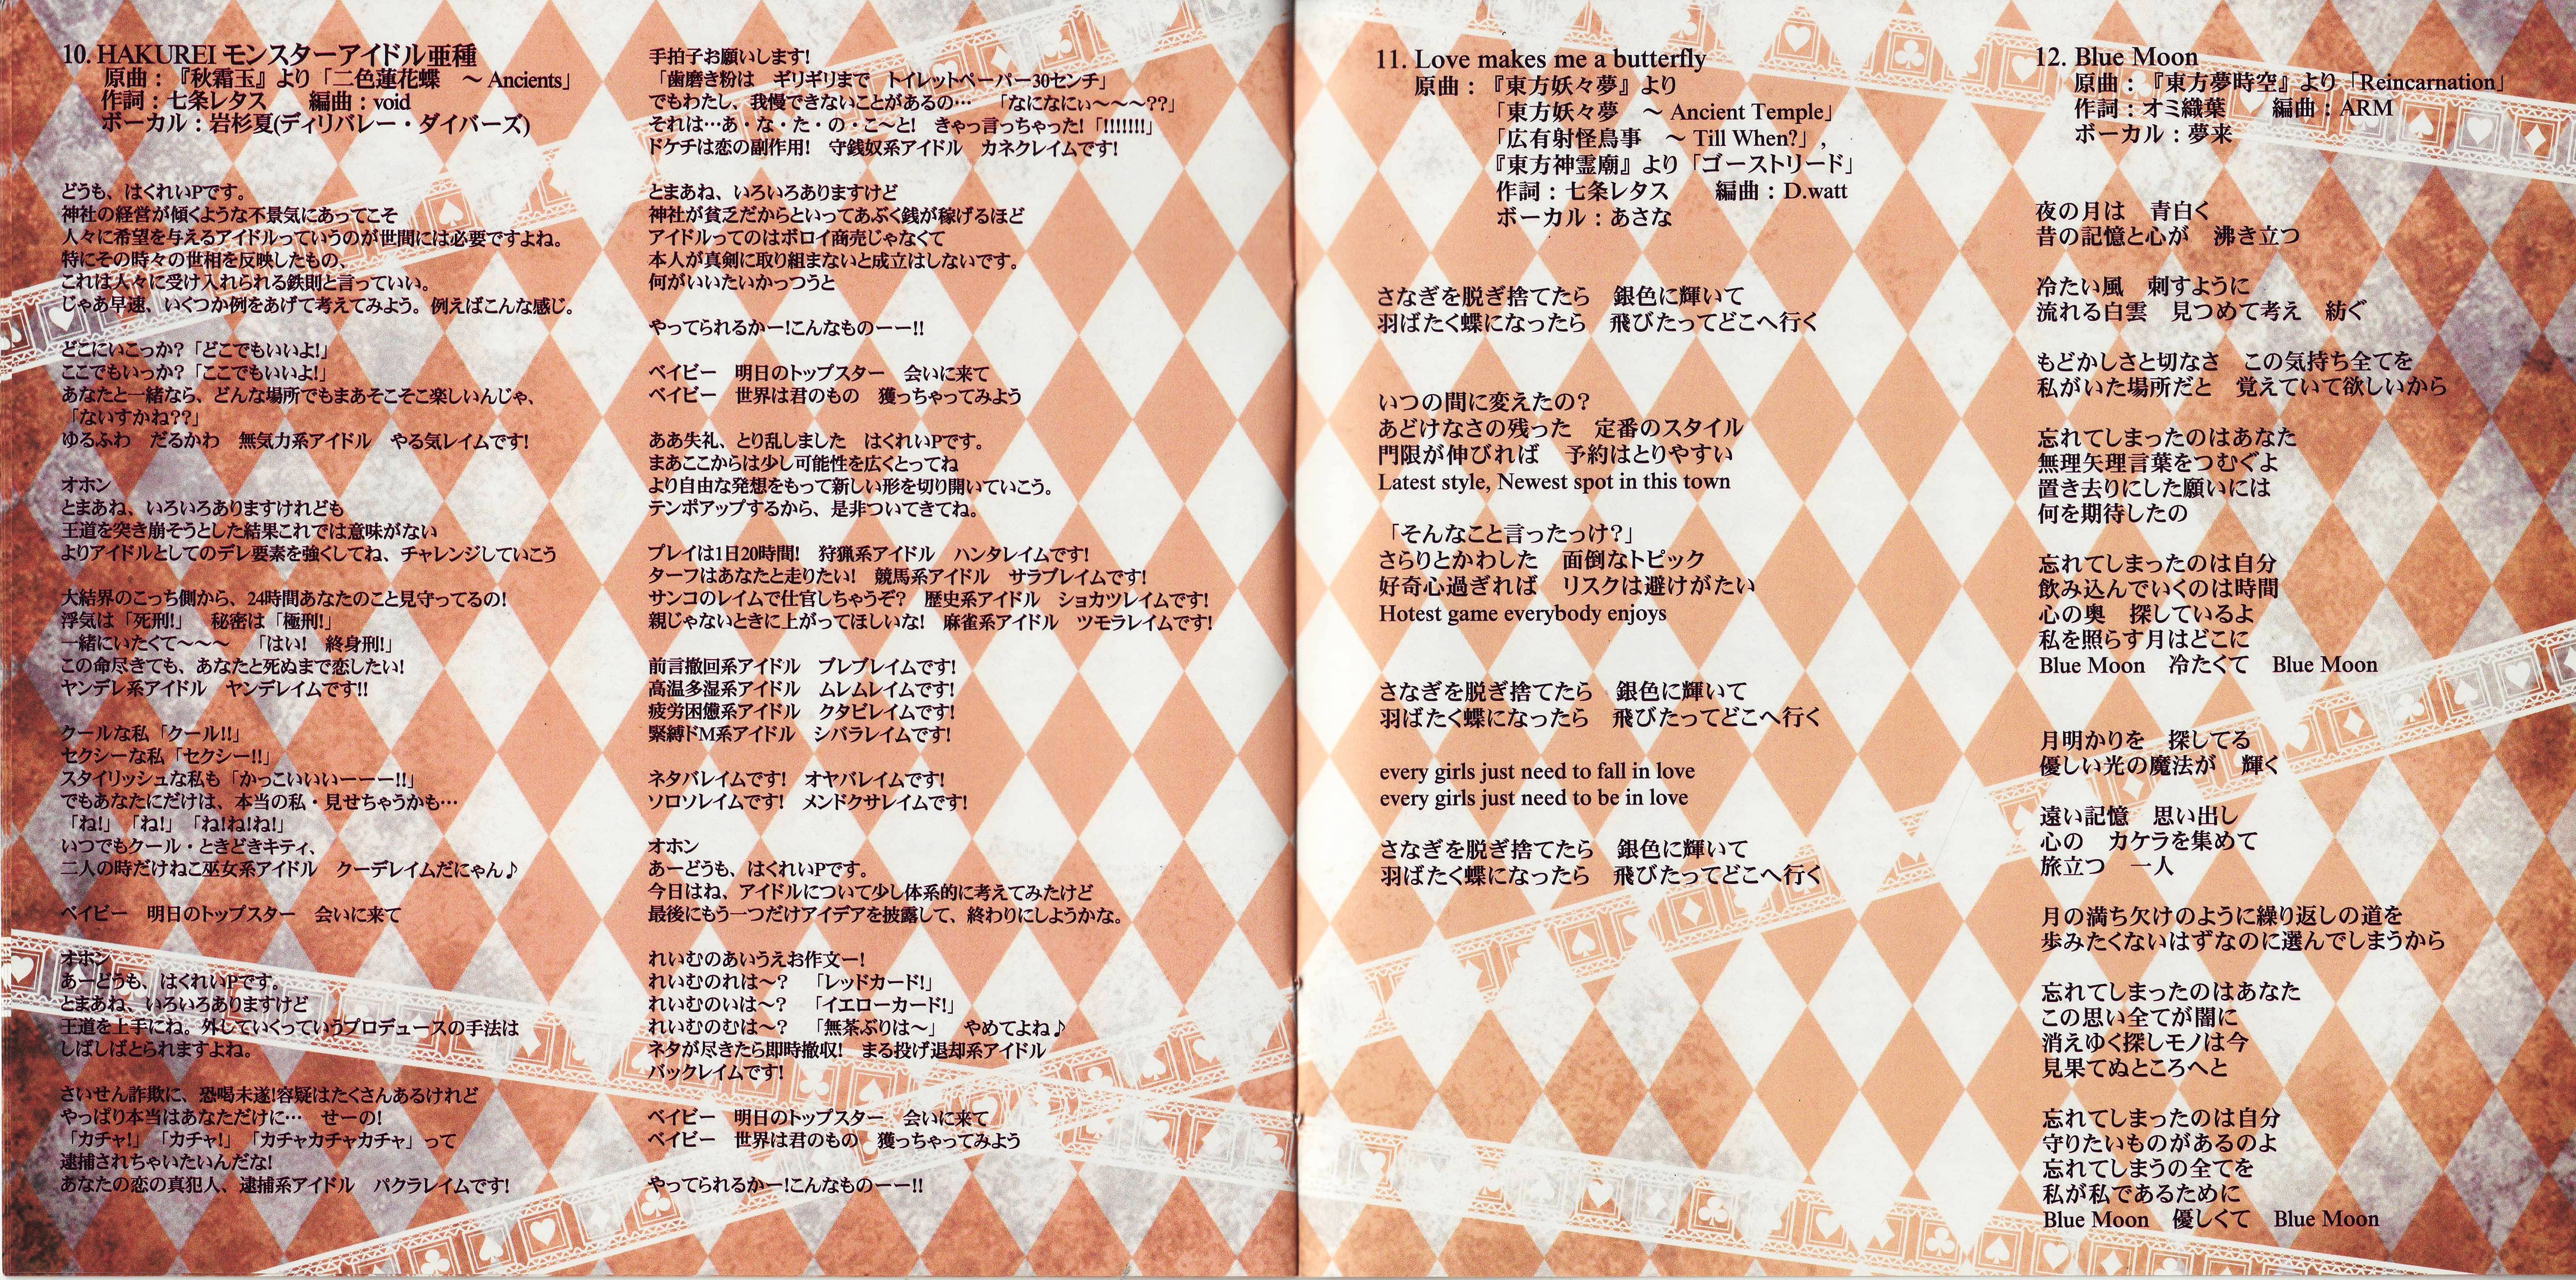 10. HAKUREI モンスターアイドル亜種
原曲：『秋霜玉』より「二色蓮花蝶　～ Ancients」
作詞：七条レタス　　編曲：void
ボーカル：岩杉夏(ディリバレー・ダイバーズ)
どうも、はくれいPです。
神社の経営が傾くような不景気にあってこそ
人々に希望を与えるアイドルっていうのが世間には必要ですよね。
特にその時々の世相を反映したもの、
これは人々に受け入れられる鉄則と言っていい。
じゃあ早速、いくつか例をあげて考えてみよう。例えばこんな感じ。
どこにいこっか？「どこでもいいよ!」
ここでもいっか？「ここでもいいよ!」
あなたと一緒なら、どんな場所でもまあそこそこ楽しいんじゃ、
「ないすかね??」
ゆるふわ　だるかわ　無気力系アイドル　やる気レイムです!
オホン
とまあね、いろいろありますけれども
王道を突き崩そうとした結果これでは意味がない
よりアイドルとしてのデレ要素を強くしてね、チャレンジしていこう
大結界のこっち側から、24時間あなたのこと見守ってるの!
浮気は「死刑!」　秘密は「極刑!」
一緒にいたくて～～～　「はい!　終身刑!」
この命尽きても、あなたと死ぬまで恋したい!
ヤンデレ系アイドル　ヤンデレイムです!!
クールな私「クール!!」
セクシーな私「セクシー!!」
スタイリッシュな私も「かっこいいいーーー!!」
でもあなたにだけは、本当の私・見せちゃうかも…
「ね!」「ね!」「ね!ね!ね!」
いつでもクール・ときどきキティ、
二人の時だけねこ巫女系アイドル　クーデレイムだにゃん♪
ベイビー　明日のトップスター　会いに来て
オホン
あーどうも、はくれいPです。
とまあね、いろいろありますけど
王道を上手にね。外していくっていうプロデュースの手法は
しばしばとられますよね。
さいせん詐欺に、恐喝未遂!容疑はたくさんあるけれど
やっぱり本当はあなただけに…　せーの!
「カチャ!」「カチャ!」「カチャカチャカチャ」って
逮捕されちゃいたいんだな!
あなたの恋の真犯人、逮捕系アイドル　パクラレイムです!
手拍子お願いします!
「歯磨き粉は　ギリギリまで　トイレットペーパー30センチ」
でもわたし、我慢できないことがあるの…　「なになにぃ～～～??」
それは…あ・な・た・の・こ～と!　きゃっ言っちゃった!「!!!!!!!」
ドケチは恋の副作用!　守銭奴系アイドル　カネクレイムです!
とまあね、いろいろありますけど
神社が貧乏だからといってあぶく銭が稼げるほど
アイドルってのはボロイ商売じゃなくて
本人が真剣に取り組まないと成立はしないです。
何がいいたいかっつうと
やってられるかー!こんなものーー!!
ベイビー　明日のトップスター　会いに来て
ベイビー　世界は君のもの　獲っちゃってみよう
ああ失礼、とり乱しました　はくれいPです。
まあここからは少し可能性を広くとってね
より自由な発想をもって新しい形を切り開いていこう。
テンポアップするから、是非ついてきてね。
プレイは1日20時間!　狩猟系アイドル　ハンタレイムです!
ターフはあなたと走りたい!　競馬系アイドル　サラブレイムです!
サンコのレイムで仕官しちゃうぞ？　歴史系アイドル　ショカツレイムです!
親じゃないときに上がってほしいな!　麻雀系アイドル　ツモラレイムです!
前言撤回系アイドル　ブレブレイムです!
高温多湿系アイドル　ムレムレイムです!
疲労困憊系アイドル　クタビレイムです!
緊縛ドM系アイドル　シバラレイムです!
ネタバレイムです!　オヤバレイムです!
ソロソレイムです!　メンドクサレイムです!
オホン
あーどうも、はくれいPです。
今日はね、アイドルについて少し体系的に考えてみたけど
最後にもう一つだけアイデアを披露して、終わりにしようかな。
れいむのあいうえお作文ー!
れいむのれは～？　「レッドカード!」
れいむのいは～？　「イエローカード!」
れいむのむは～？　「無茶ぶりは～」　やめてよね♪
ネタが尽きたら即時撤収!　まる投げ退却系アイドル
バックレイムです!
ベイビー　明日のトップスター　会いに来て
ベイビー　世界は君のもの　獲っちゃってみよう
やってられるかー!こんなものーー!!
11. Love makes me a butterfly
原曲：『東方妖々夢』より
「東方妖々夢　～ Ancient Temple」
「広有射怪鳥事　～ Till When?」,
『東方神霊廟』より「ゴーストリード」
作詞：七条レタス　　編曲：D.watt
ボーカル：あさな
さなぎを脱ぎ捨てたら　銀色に輝いて
羽ばたく蝶になったら　飛びたってどこへ行く
いつの間に変えたの？
あどけなさの残った　定番のスタイル
門限が伸びれば　予約はとりやすい
Latest style, Newest spot in this town
「そんなこと言ったっけ？」
さらりとかわした　面倒なトピック
好奇心過ぎれば　リスクは避けがたい
Hotest game everybody enjoys
さなぎを脱ぎ捨てたら　銀色に輝いて
羽ばたく蝶になったら　飛びたってどこへ行く
every girls just need to fall in love
every girls just need to be in love
さなぎを脱ぎ捨てたら　銀色に輝いて
羽ばたく蝶になったら　飛びたってどこへ行く
12. Blue Moon
原曲：『東方夢時空』より「Reincarnation」
作詞：オミ織葉　　編曲：ARM
ボーカル：夢来
夜の月は　青白く
昔の記憶と心が　沸き立つ
冷たい風　刺すように
流れる白雲　見つめて考え　紡ぐ
もどかしさと切なさ　この気持ち全てを
私がいた場所だと　覚えていて欲しいから
忘れてしまったのはあなた
無理矢理言葉をつむぐよ
置き去りにした願いには
何を期待したの
忘れてしまったのは自分
飲み込んでいくのは時間
心の奥　探しているよ
私を照らす月はどこに
Blue Moon　冷たくて　Blue Moon
月明かりを　探してる
優しい光の魔法が　輝く
遠い記憶　思い出し
心の　カケラを集めて
旅立つ　一人
月の満ち欠けのように繰り返しの道を
歩みたくないはずなのに選んでしまうから
忘れてしまったのはあなた
この思い全てが闇に
消えゆく探しモノは今
見果てぬところへと
忘れてしまったのは自分
守りたいものがあるのよ
忘れてしまうの全てを
私が私であるために
Blue Moon　優しくて　Blue Moon